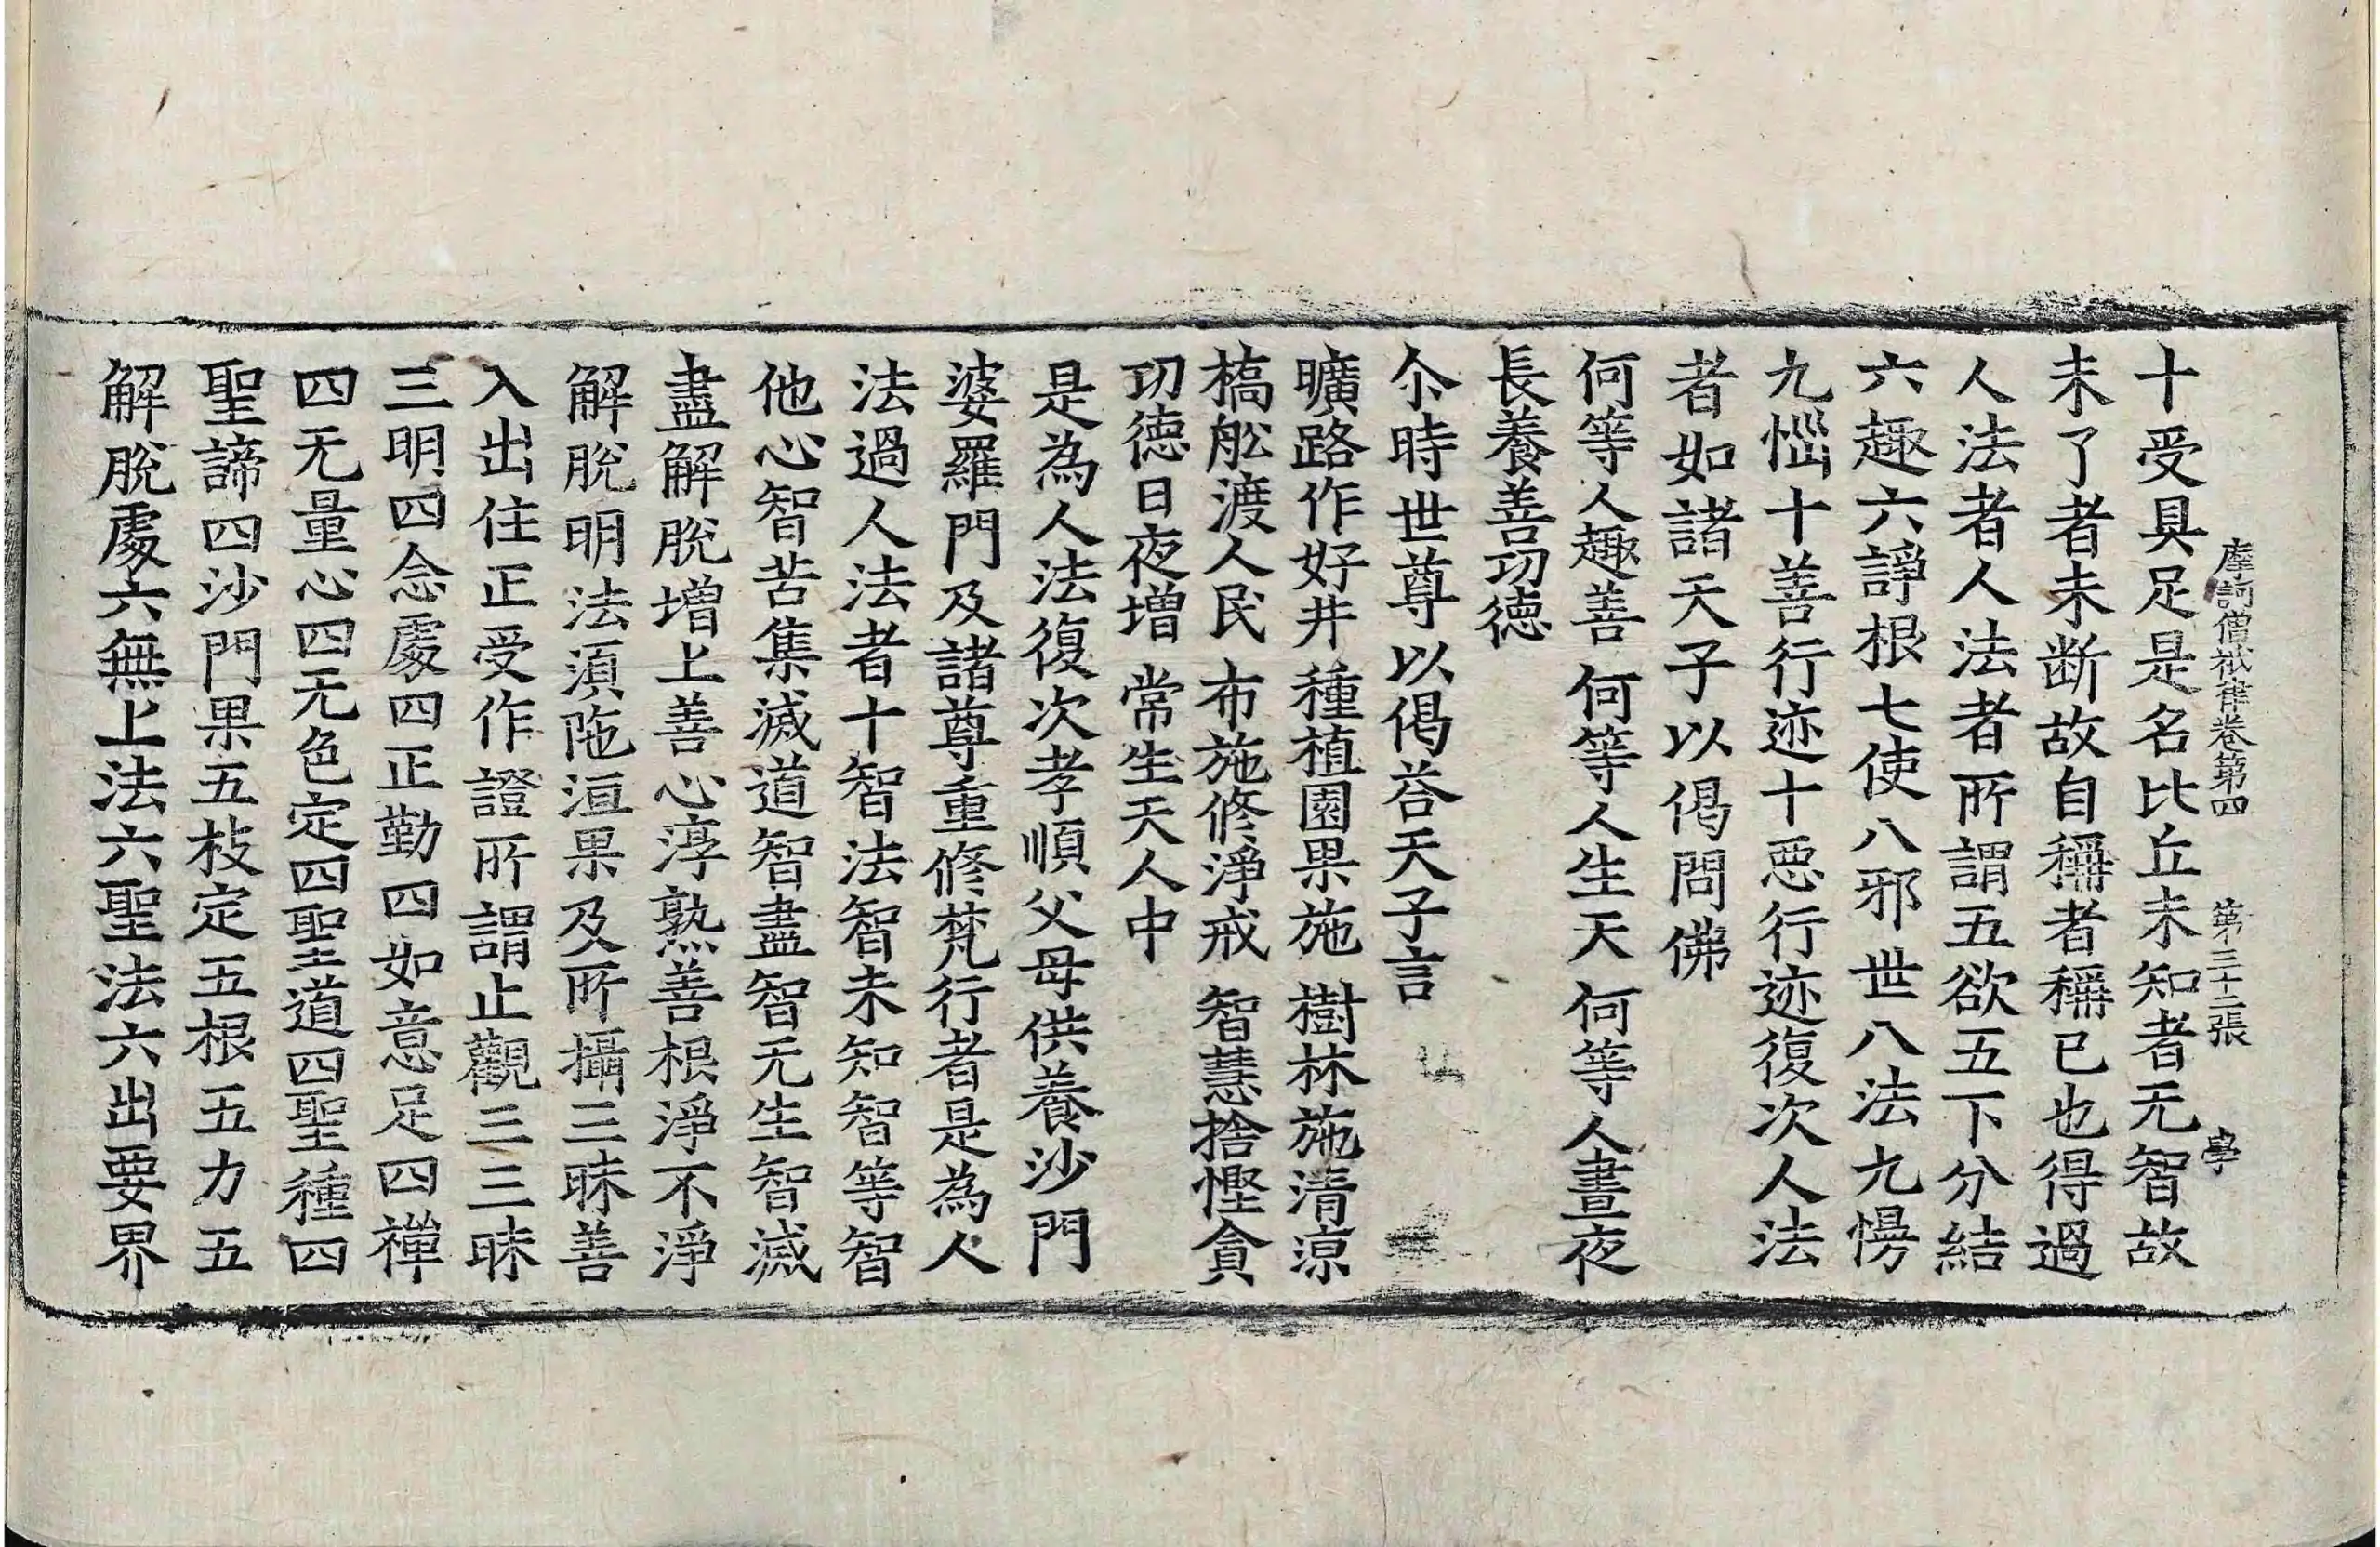 摩訶僧祇律卷第四　第三十二張　學
十受具足是名比丘未知者无智故
未了者未断故自稱者稱已也得過
人法者人法者所謂五欲五下分結
六趣六諍根七使八邪世八法九慢
九惱十善行迹十惡行迹復次人法
者如諸天子以偈問佛
何等人趣善　何等人生天　何等人晝夜
長養善功德
尒時世尊以偈荅天子言
曠路作好井　種植園果施　樹林施清涼
橋舩渡人民　布施修淨戒　智慧捨慳貪
功德日夜增　常生天人中
是為人法復次孝順父母供養沙門
婆羅門及諸尊重修梵行者是為人
法過人法者十智法智未知智等智
他心智苦集滅道智盡智无生智滅
盡解脫增上善心淳熟善根淨不淨
解脫明法湏陁洹果及所攝三昧善
入出住正受作證所謂止觀三三昧
三明四念處四正勤四如意足四禪
四无量心四无色定四聖道四聖種四
聖諦四沙門果五枝定五根五力五
解脫處六無上法六聖法六出要界